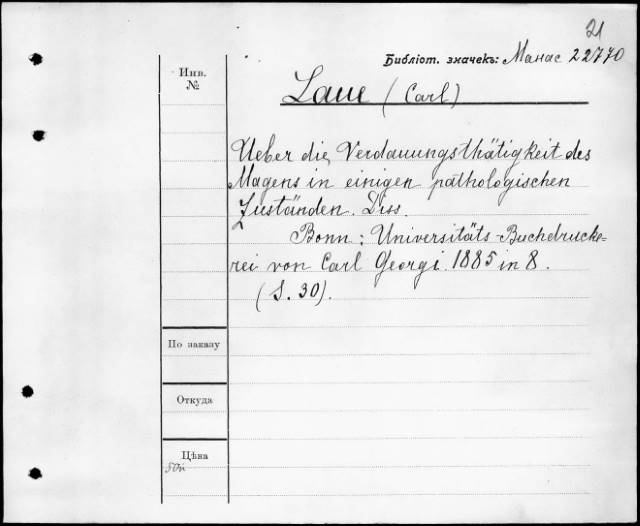 21
Библіот. значекъ: Манас 22770
Инв.
№
Laue (Carl)
Ueber die Verdauungsthätigkeit des
Magens in einigen pathologischen
Zuständen. Diss.
Bonn: Universitäts-Buchdrucke=
rei von Carl Georgi 1885 in 8.
(S. 30).
По заказу
Откуда
Цѣна
50к